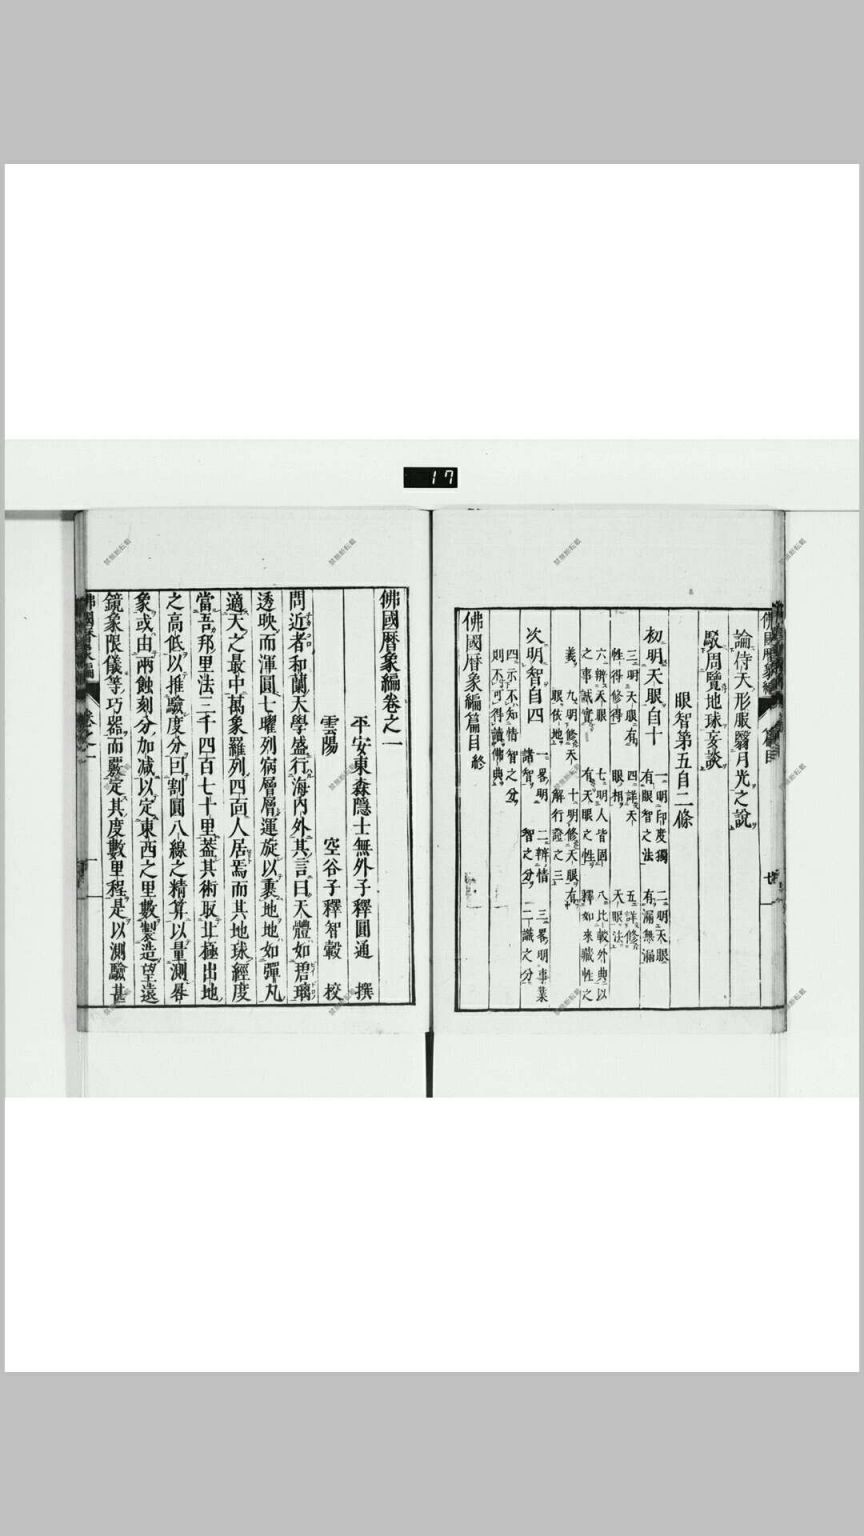 17
佛國暦象編 篇目 七
論侍天形服翳月光之說
駁周覽地球妄談
眼智第五自二條
初明天眼自十
一明印度獨有眼智之法
二明天眼有漏無漏
三明天眼有性得修得
四詳天眼相
五詳修天眼法
六辨天眼之事誠實
七明人皆固有天眼之性
八比較外典以釋如來職性之義
九明修天眼依地
十明修天眼有解行證之三
次明智自四
一畧明諸智
二辨情智之分
三畧明事業二識之分
四示不知情智之分則不可得讀佛典
佛國暦象編篇目終
佛國暦象編卷之一
平安東森隱士無外子釋圓通 撰
雲陽 空谷子釋智轂 校
問近者和蘭天學盛行海內外其言曰天體如碧璃
透映而渾圓七曜列宿層層運旋以裹地地如彈丸
適天之最中萬象羅列四面人居焉而其地球經度
當吾邦里法三千四百七十里蓋其術取北極出地
之高低以推驗度分曰割圓八線之精算以量測晷
象或由兩蝕刻分加减以定東西之里數製造望遠
鏡象限儀等巧器而嚴定其度數里程是以測驗甚
佛國暦象編 卷之一 一
禁無断転載
禁無断転載
禁無断転載
禁無断転載
禁無断転載
禁無断転載
禁無断転載
禁無断転載
禁無断転載
禁無断転載
禁無断転載
禁無断転載